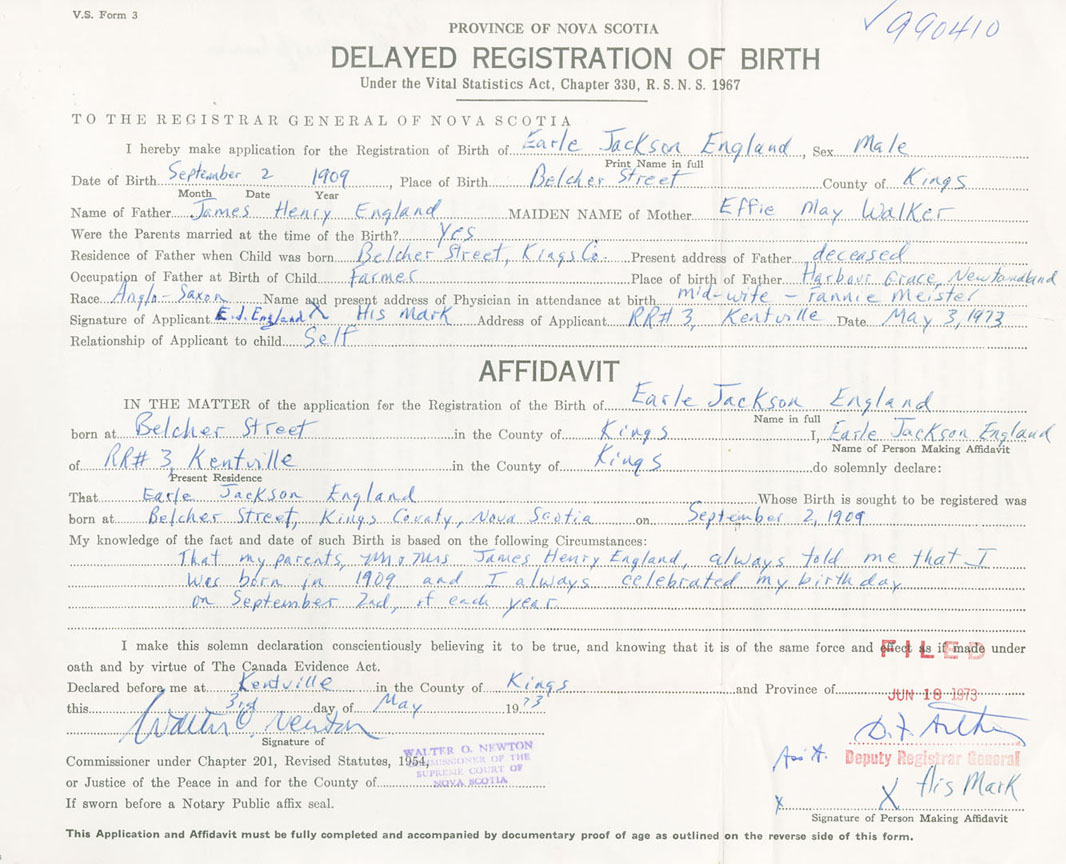 V.S. Form 3
√990410
PROVINCE OF NOVA SCOTIA
DELAYED REGISTRATION OF BIRTH
Under the Vital Statistics Act, Chapter 330, R.S.N.S. 1967
TO THE REGISTRAR GENERAL OF NOVA SCOTIA
I hereby make application for the Registration of Birth of Earle Jackson England, Sex Male
Print Name in full
Date of Birth September 2 1909, Place of Birth Belcher Street County of Kings
Month Date Year
Name of Father James Henry England MAIDEN NAME of Mother Effie May Walker
Were the Parents married at the time of the Birth? Yes
Residence of Father when Child was born Belcher Street, Kings Co. Present address of Father deceased
Occupation of Father at Birth of Child Farmer Place of birth of Father Harbour Grace, Newfoundland
Race Anglo-Saxon Name and present address of Physician in attendance at birth mid-wife - Fannie Meister
Signature of Applicant E.J. England X His Mark Address of Applicant RR# 3, Kentville Date May 3, 1973
Relationship of Applicant to child Self
AFFIDAVIT
IN THE MATTER of the application for the Registration of the Birth of Earle Jackson England
Name in full
born at Belcher Street in the County of Kings I, Earle Jackson England
Name of Person Making Affidavit
of RR# 3, Kentville in the County of Kings do solemnly declare:
Present Residence
That Earle Jackson England Whose Birth is sought to be registered was
born at Belcher Street, Kings County, Nova Scotia on September 2, 1909
My knowledge of the fact and date of such Birth is based on the following Circumstances:
That my parents, Mr & Mrs James Henry England, always told me that I
was born in 1909 and I always celebrated my birthday
on September 2nd, of each year
I make this solemn declaration conscientiously believing it to be true, and knowing that it is of the same force and effect as if made under
FILED
oath and by virtue of The Canada Evidence Act.
Declared before me at Kentville in the County of Kings and Province of
JUN 18 1973
this 3rd day of May 1973
Walter O. Newton
Signature of
WALTER O. NEWTON
COMMISSIONER OF THE
SUPREME COURT OF
NOVA SCOTIA
Commissioner under Chapter 201, Revised Statutes, 1954,
or Justice of the Peace in and for the County of
If sworn before a Notary Public affix seal.
D.F.
Ass't. Deputy Registrar General
X X His Mark
Signature of Person Making Affidavit
This Application and Affidavit must be fully completed and accompanied by documentary proof of age as outlined on the reverse side of this form.